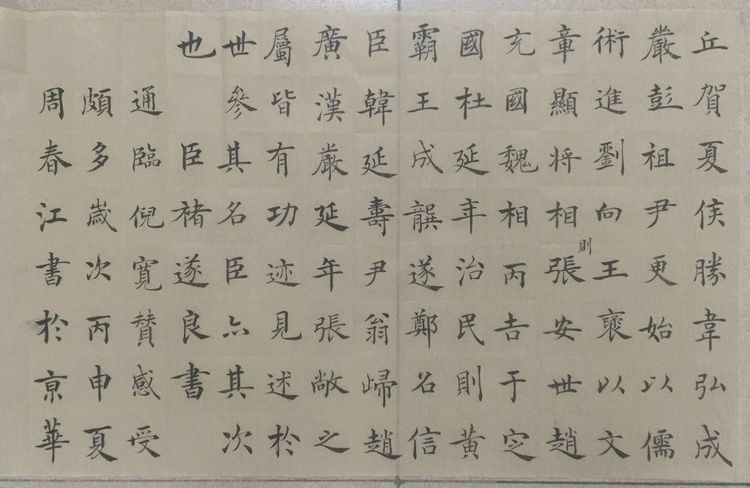 丘賀夏侯勝韋弘成
嚴彭祖尹更始以儒
術進劉向王褒以文
章顯將相則張安世趙
充國魏相丙吉于定
國杜延年治民則黃
霸王成龔遂鄭名信
臣韓延壽尹翁歸趙
廣漢嚴延年張敞之
屬皆有功迹見述於
世參其名臣亦其次
也 臣褚遂良書
通臨倪寬贊感受
頗多嵗次丙申夏
周春江書於京華